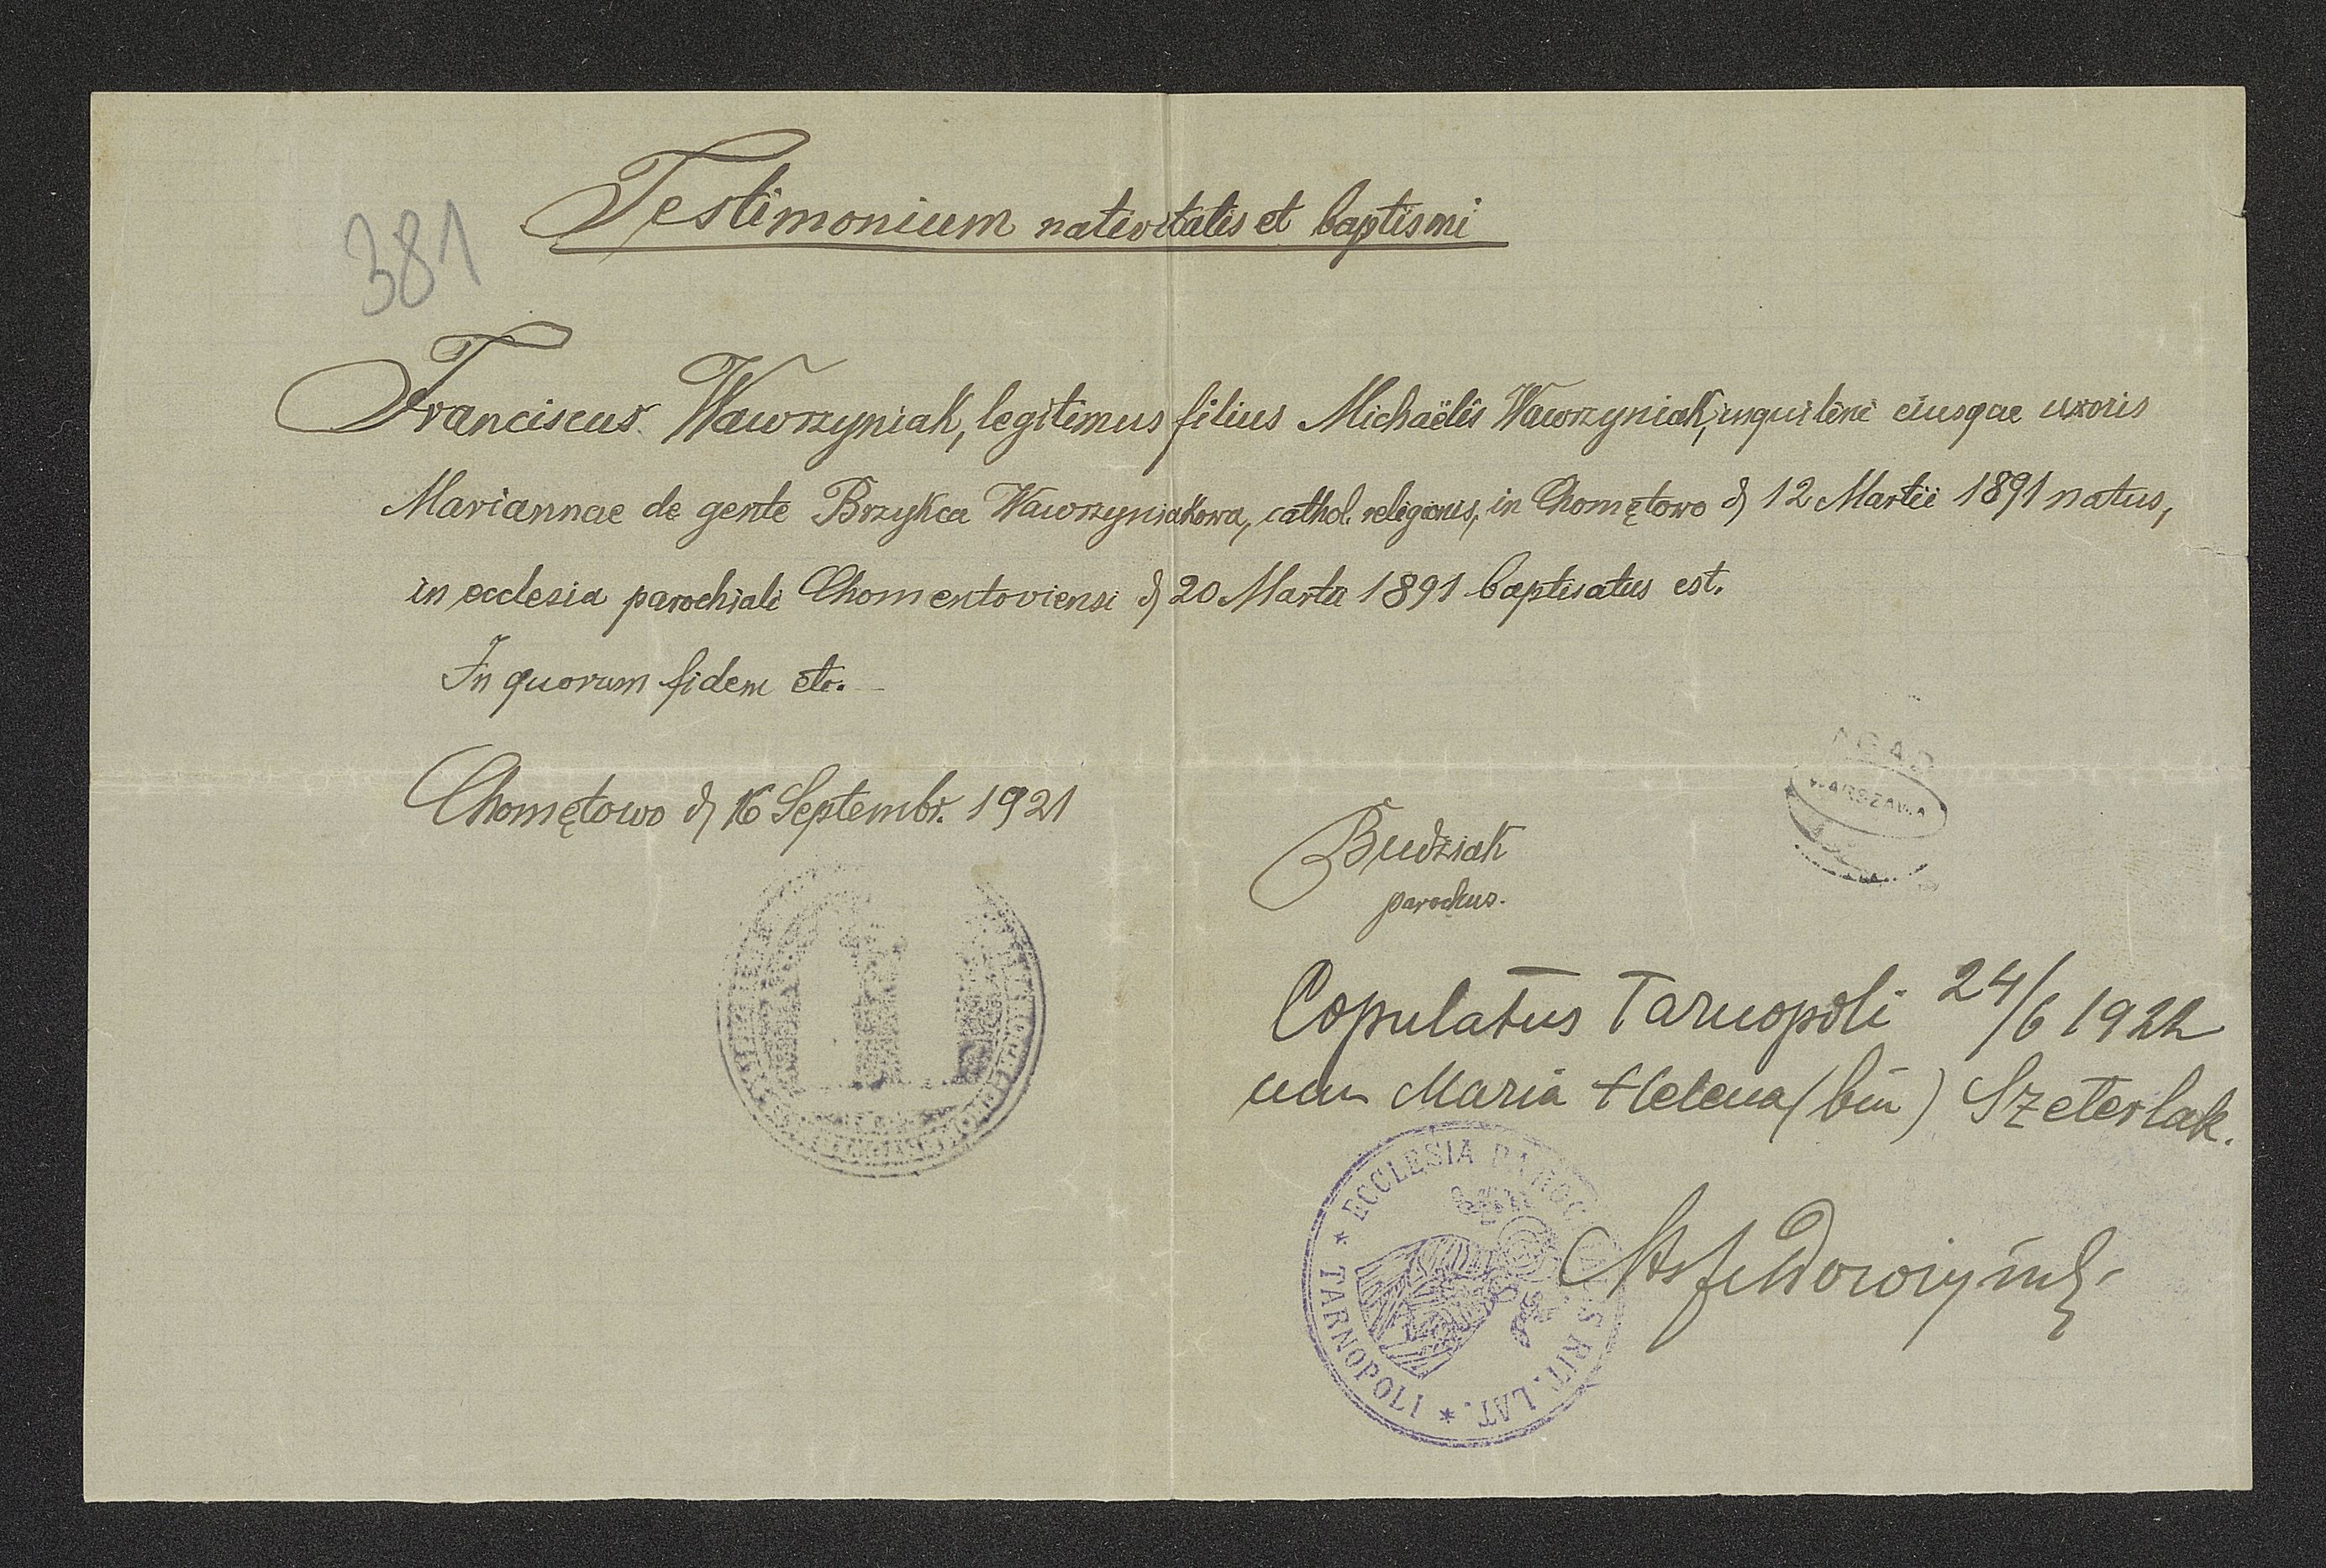 381
Testimonium nativitatis et baptismi
Franciscus Wawrzyniak, legitimus filius Michaëlis Wawrzyniak, inquilini eiusque uxoris
Mariannae de gente Brzykca Wawrzyniakowa, cathol. religionis, in Chomętowo d, 12 Martii 1891 natus,
in ecclesia parochiali Chomentoviensi d, 20 Martii 1891 baptisatus est.
In quorum fidem etc.
Chomętowo d, 16 Septembr. 1921
AGAD
WARSZAWA
Budziak
parochus.
Copulatus Tarnopoli 24/6 1922
cum Maria Helena (bin) Szeterlak.
* ECCLESIA PAROC S RIT. LAT. * TARNOPOLI